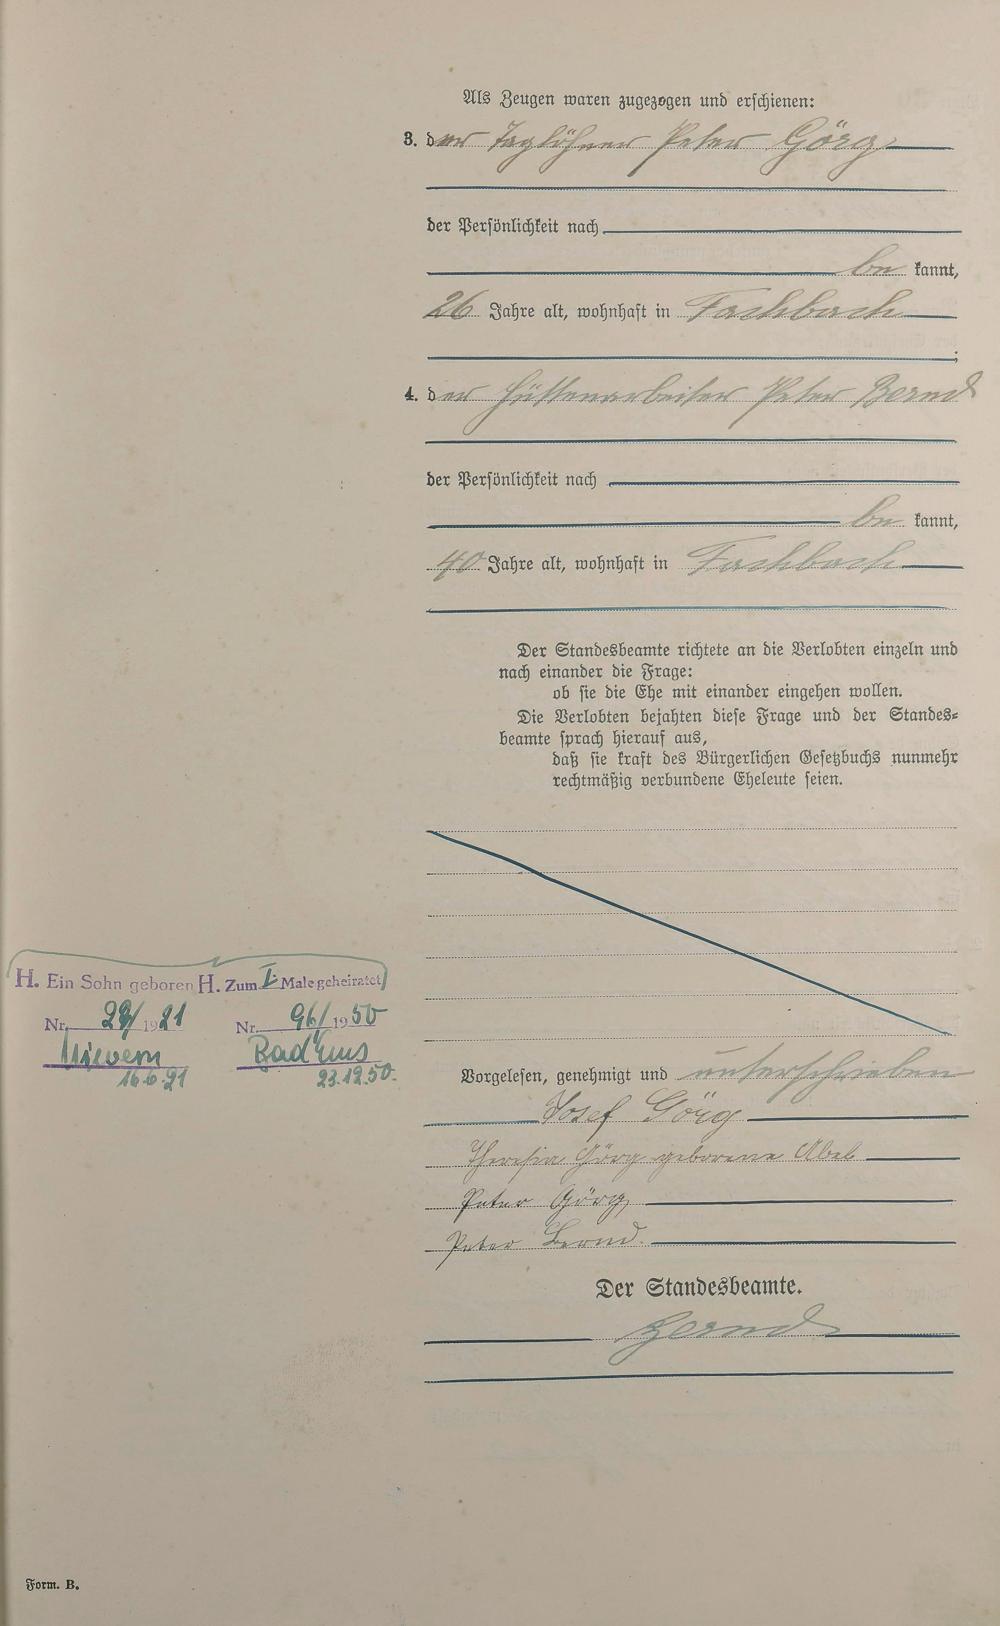 Als Zeugen waren zugezogen und erschienen:
3. der Taglöhner Peter Görg
der Persönlichkeit nach
be kannt,
26 Jahre alt, wohnhaft in Fachbach
;
4. der Hüttenarbeiter Peter Bernd
der Persönlichkeit nach
be kannt,
40 Jahre alt, wohnhaft in Fachbach
Der Standesbeamte richtete an die Verlobten einzeln und
nach einander die Frage:
ob sie die Ehe mit einander eingehen wollen.
Die Verlobten bejahten diese Frage und der Standes-
beamte sprach hierauf aus,
daß sie kraft des Bürgerlichen Gesetzbuchs nunmehr
rechtmäßig verbundene Eheleute seien.
H. Ein Sohn geboren
Nr. 1921
Nievern
16.6.21
H. Zum I. Male geheiratet
Nr. 96/1950
Bad Ems
23.12.50.
Vorgelesen, genehmigt und unterschrieben
Josef Görg
Theresia Görg geborene Abel
Peter Görg
Peter Bernd.
Der Standesbeamte.
Bernd
Form. B.